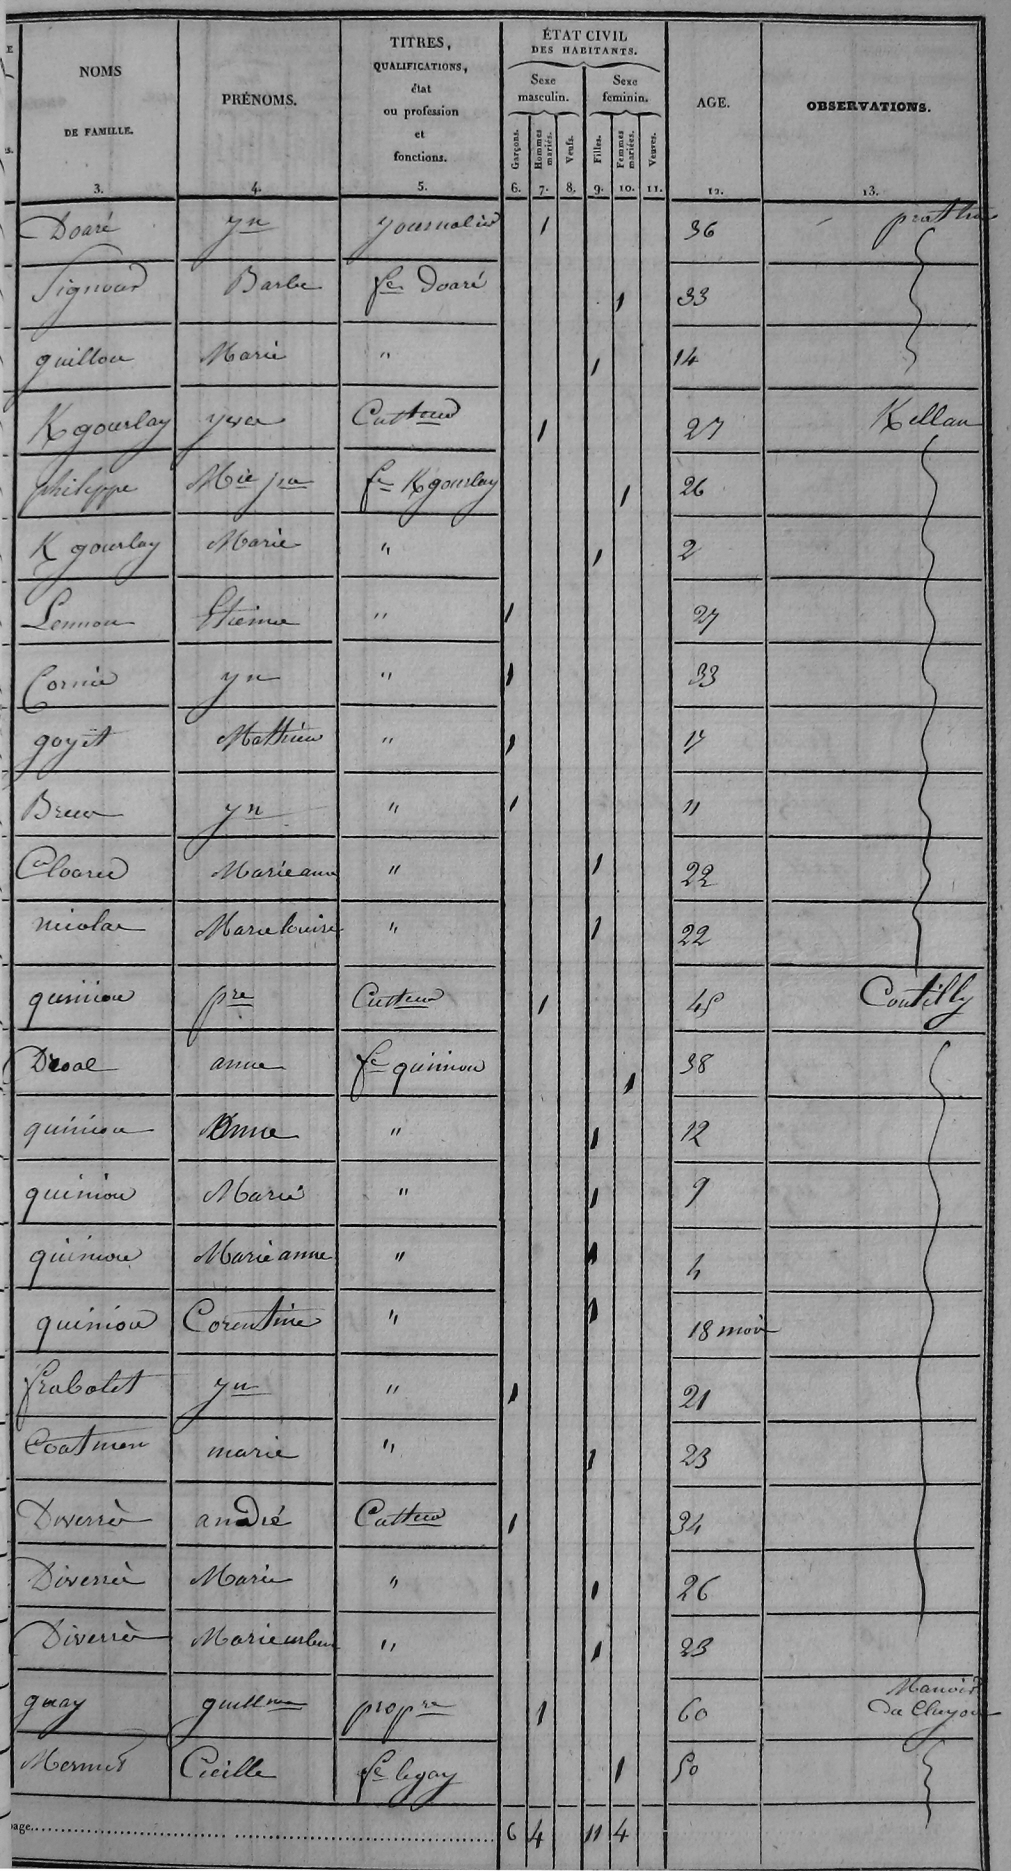 NOMS DE FAMILLE. PRÉNOMS. TITRES, QUALIFICATIONS, état ou profession et fonctions. ÉTAT CIVIL DES HABITANTS. Sexe masculin. Sexe feminin. Garçons. Hommes mariés. Veufs. Filles. Femmes mariées. Veuves. AGE. OBSERVATIONS.
3. 4. 5. 6. 7. 8. 9. 10. 11. 12. 13.
Doaré yn journalier 1 36
Signour Barbe fe Doaré 1 33
guillou Marie " 1 14
Kgourlay yves Cultteur 1 27 Kellau
philippe Mie jne fe Kgourlay 1 26
K gourlay Marie " 1 2
Lennon Etienne " 1 27
Cornic yn " 1 33
goyat Mathieu " 1 17
yn " 1 11
Cloarec Marie anne " 1 22
nicolas Marie louise " 1 22
quiniou pre Cultteur 1 45 Coutilly
Dréal anne fe quiniou 1 38
quiniou Anne " 1 12
quiniou Marie " 1 9
quiniou Marie anne " 1 4
quiniou Corentine " 1 18 mois
frabolet yn " 1 21
Coatmen marie " 1 23
Diverrès andré Cultteur 1 34
Diverrès Marie " 1 26
Diverrès Marie " 1 23
guay guillme propre 1 60 Manoir
du Cluyou
Mermet Cécille fe legay 1 50
page 6 4 11 4